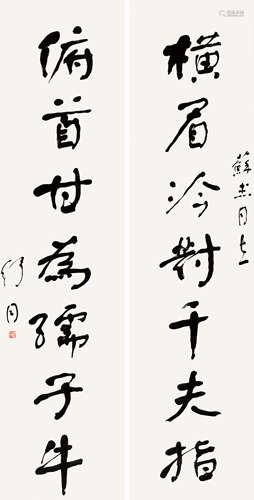 蘇杰同志
橫眉冷對千夫指
俯首甘為孺子牛
舒同